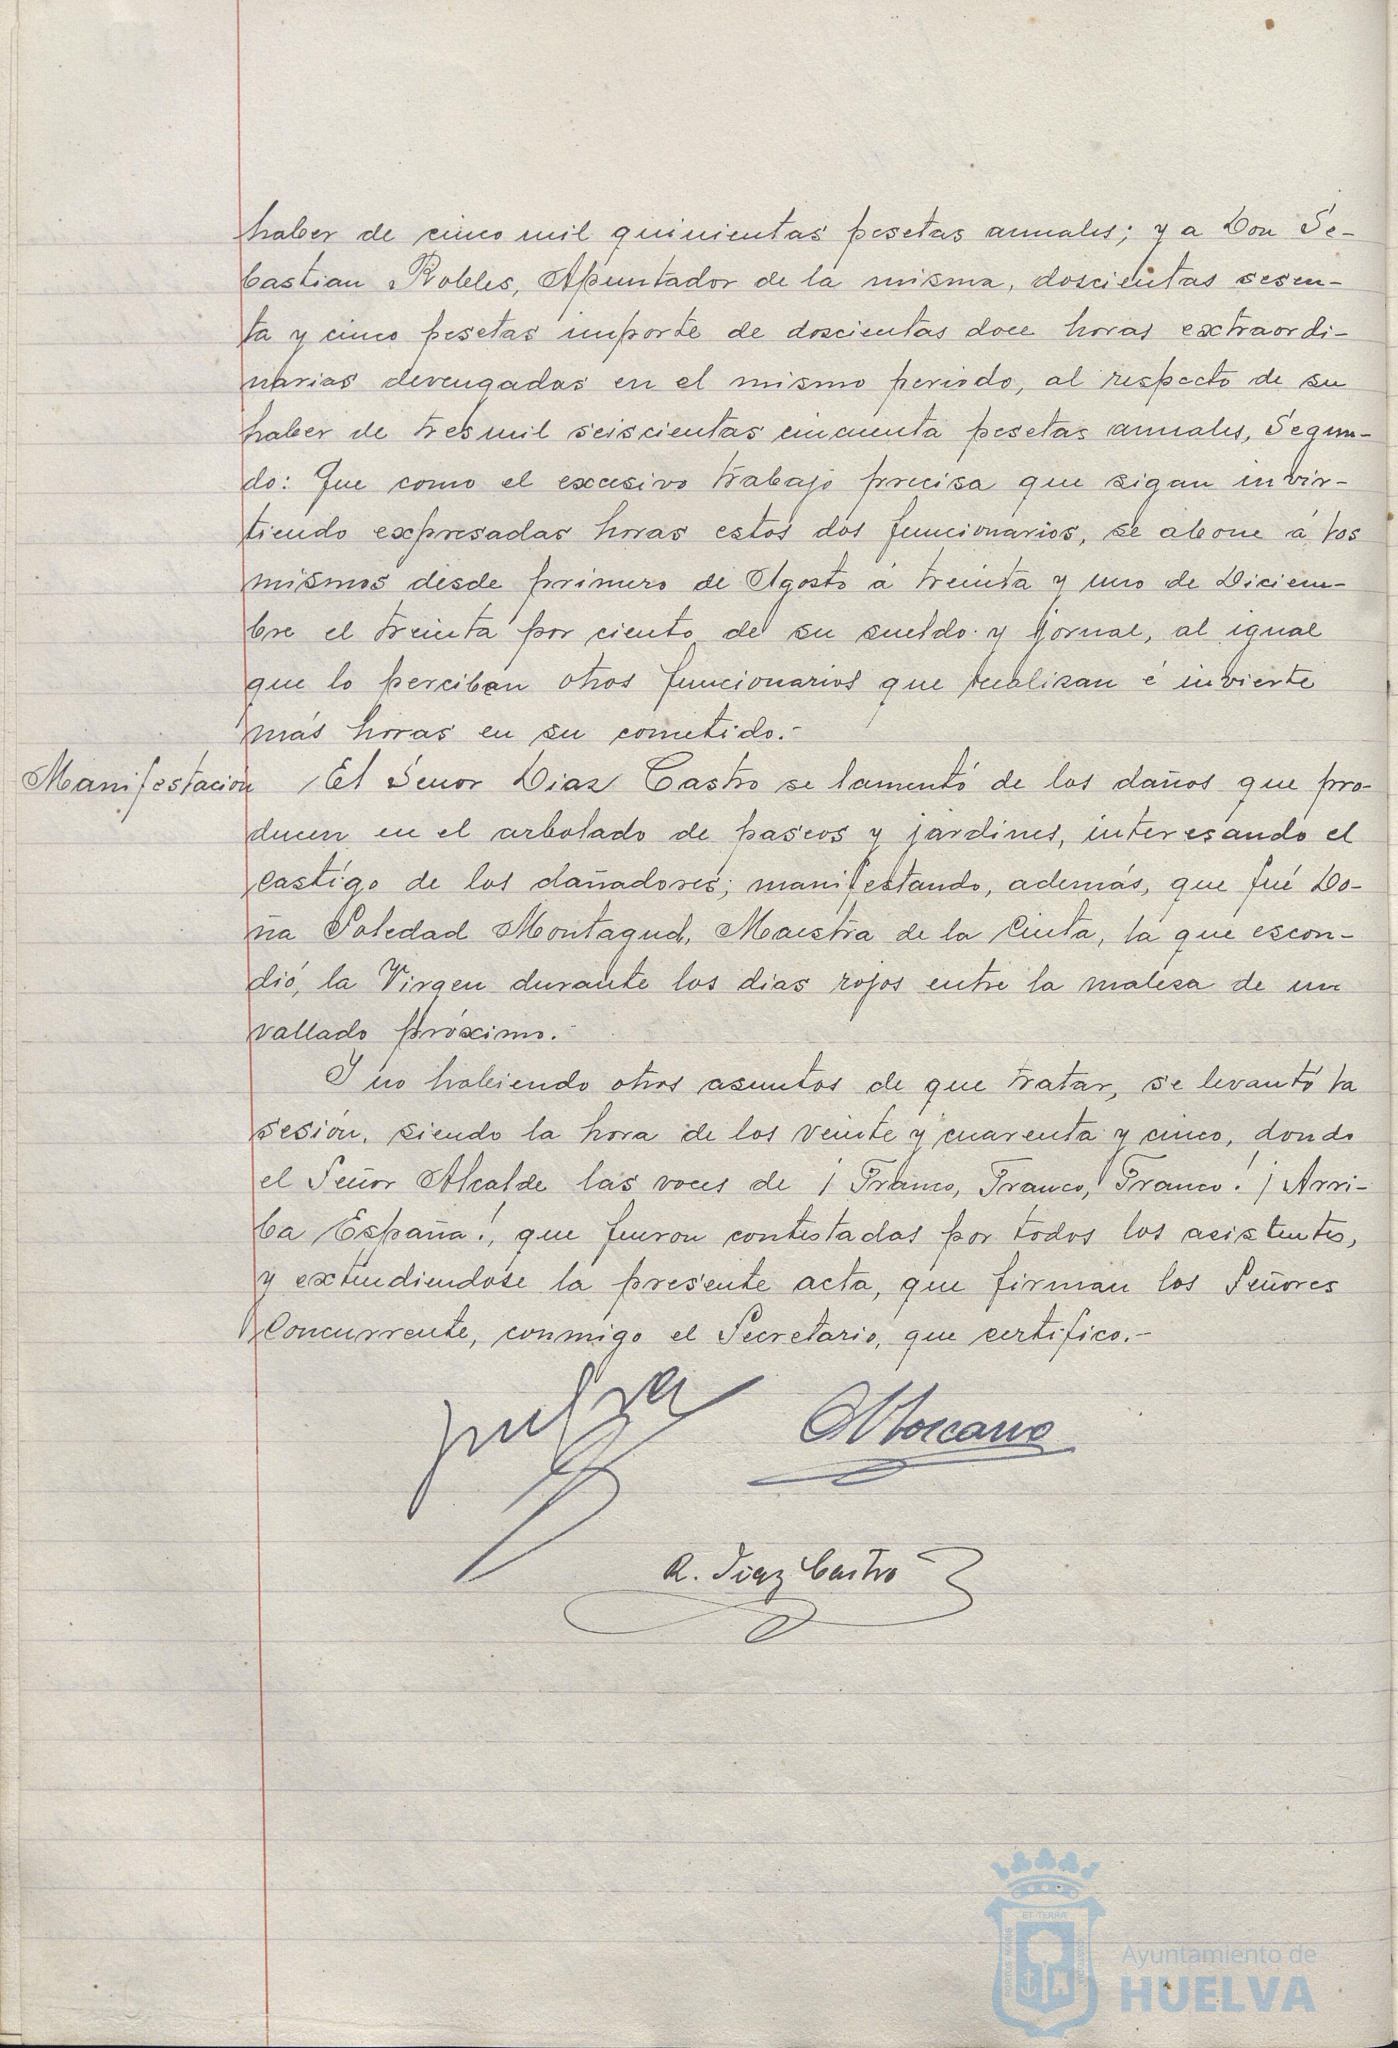 haber de cinco mil quinientas pesetas anuales; y a Don Se-
bastian Robles, Apuntador de la misma, doscientas sesen-
ta y cinco pesetas importe de doscientas doce horas extraordi-
narias devengadas en el mismo periodo, al respecto de su
haber de tres mil seiscientas cincuenta pesetas anuales, Segun-
do: Que como el excesivo trabajo precisa que sigan invir-
tiendo expresadas horas estos dos funcionarios, se abone á los
mismos desde primero de Agosto á treinta y uno de Diciem-
bre el treinta por ciento de su sueldo y jornal, al igual
que lo perciban otros funcionarios que realizan é invierte
más horas en su cometido.-
Manifestación El Señor Diaz Castro se lamentó de los daños que pro-
ducen en el arbolado de paseos y jardines, interesando el
castígo de los dañadores; manifestando, además, que fué Do-
ña Soledad Montagud, Maestra de la Cinta, la que escon-
dió, la Virgen durante los dias rojos entre la maleza de un
vallado próximo.-
Y no habiendo otros asuntos de que tratar, se levantó la
sesión, siendo la hora de los veinte y cuarenta y cinco, dando
el Señor Alcalde las voces de ¡Franco, Franco, Franco! ¡Arri-
ba España!, que fueron contestadas por todos los asistentes,
y extendiendose la presente acta, que firman los Señores
Concurrente, conmigo el Secretario, que certifico.-
R. Diaz Castro
Ayuntamiento de
HUELVA